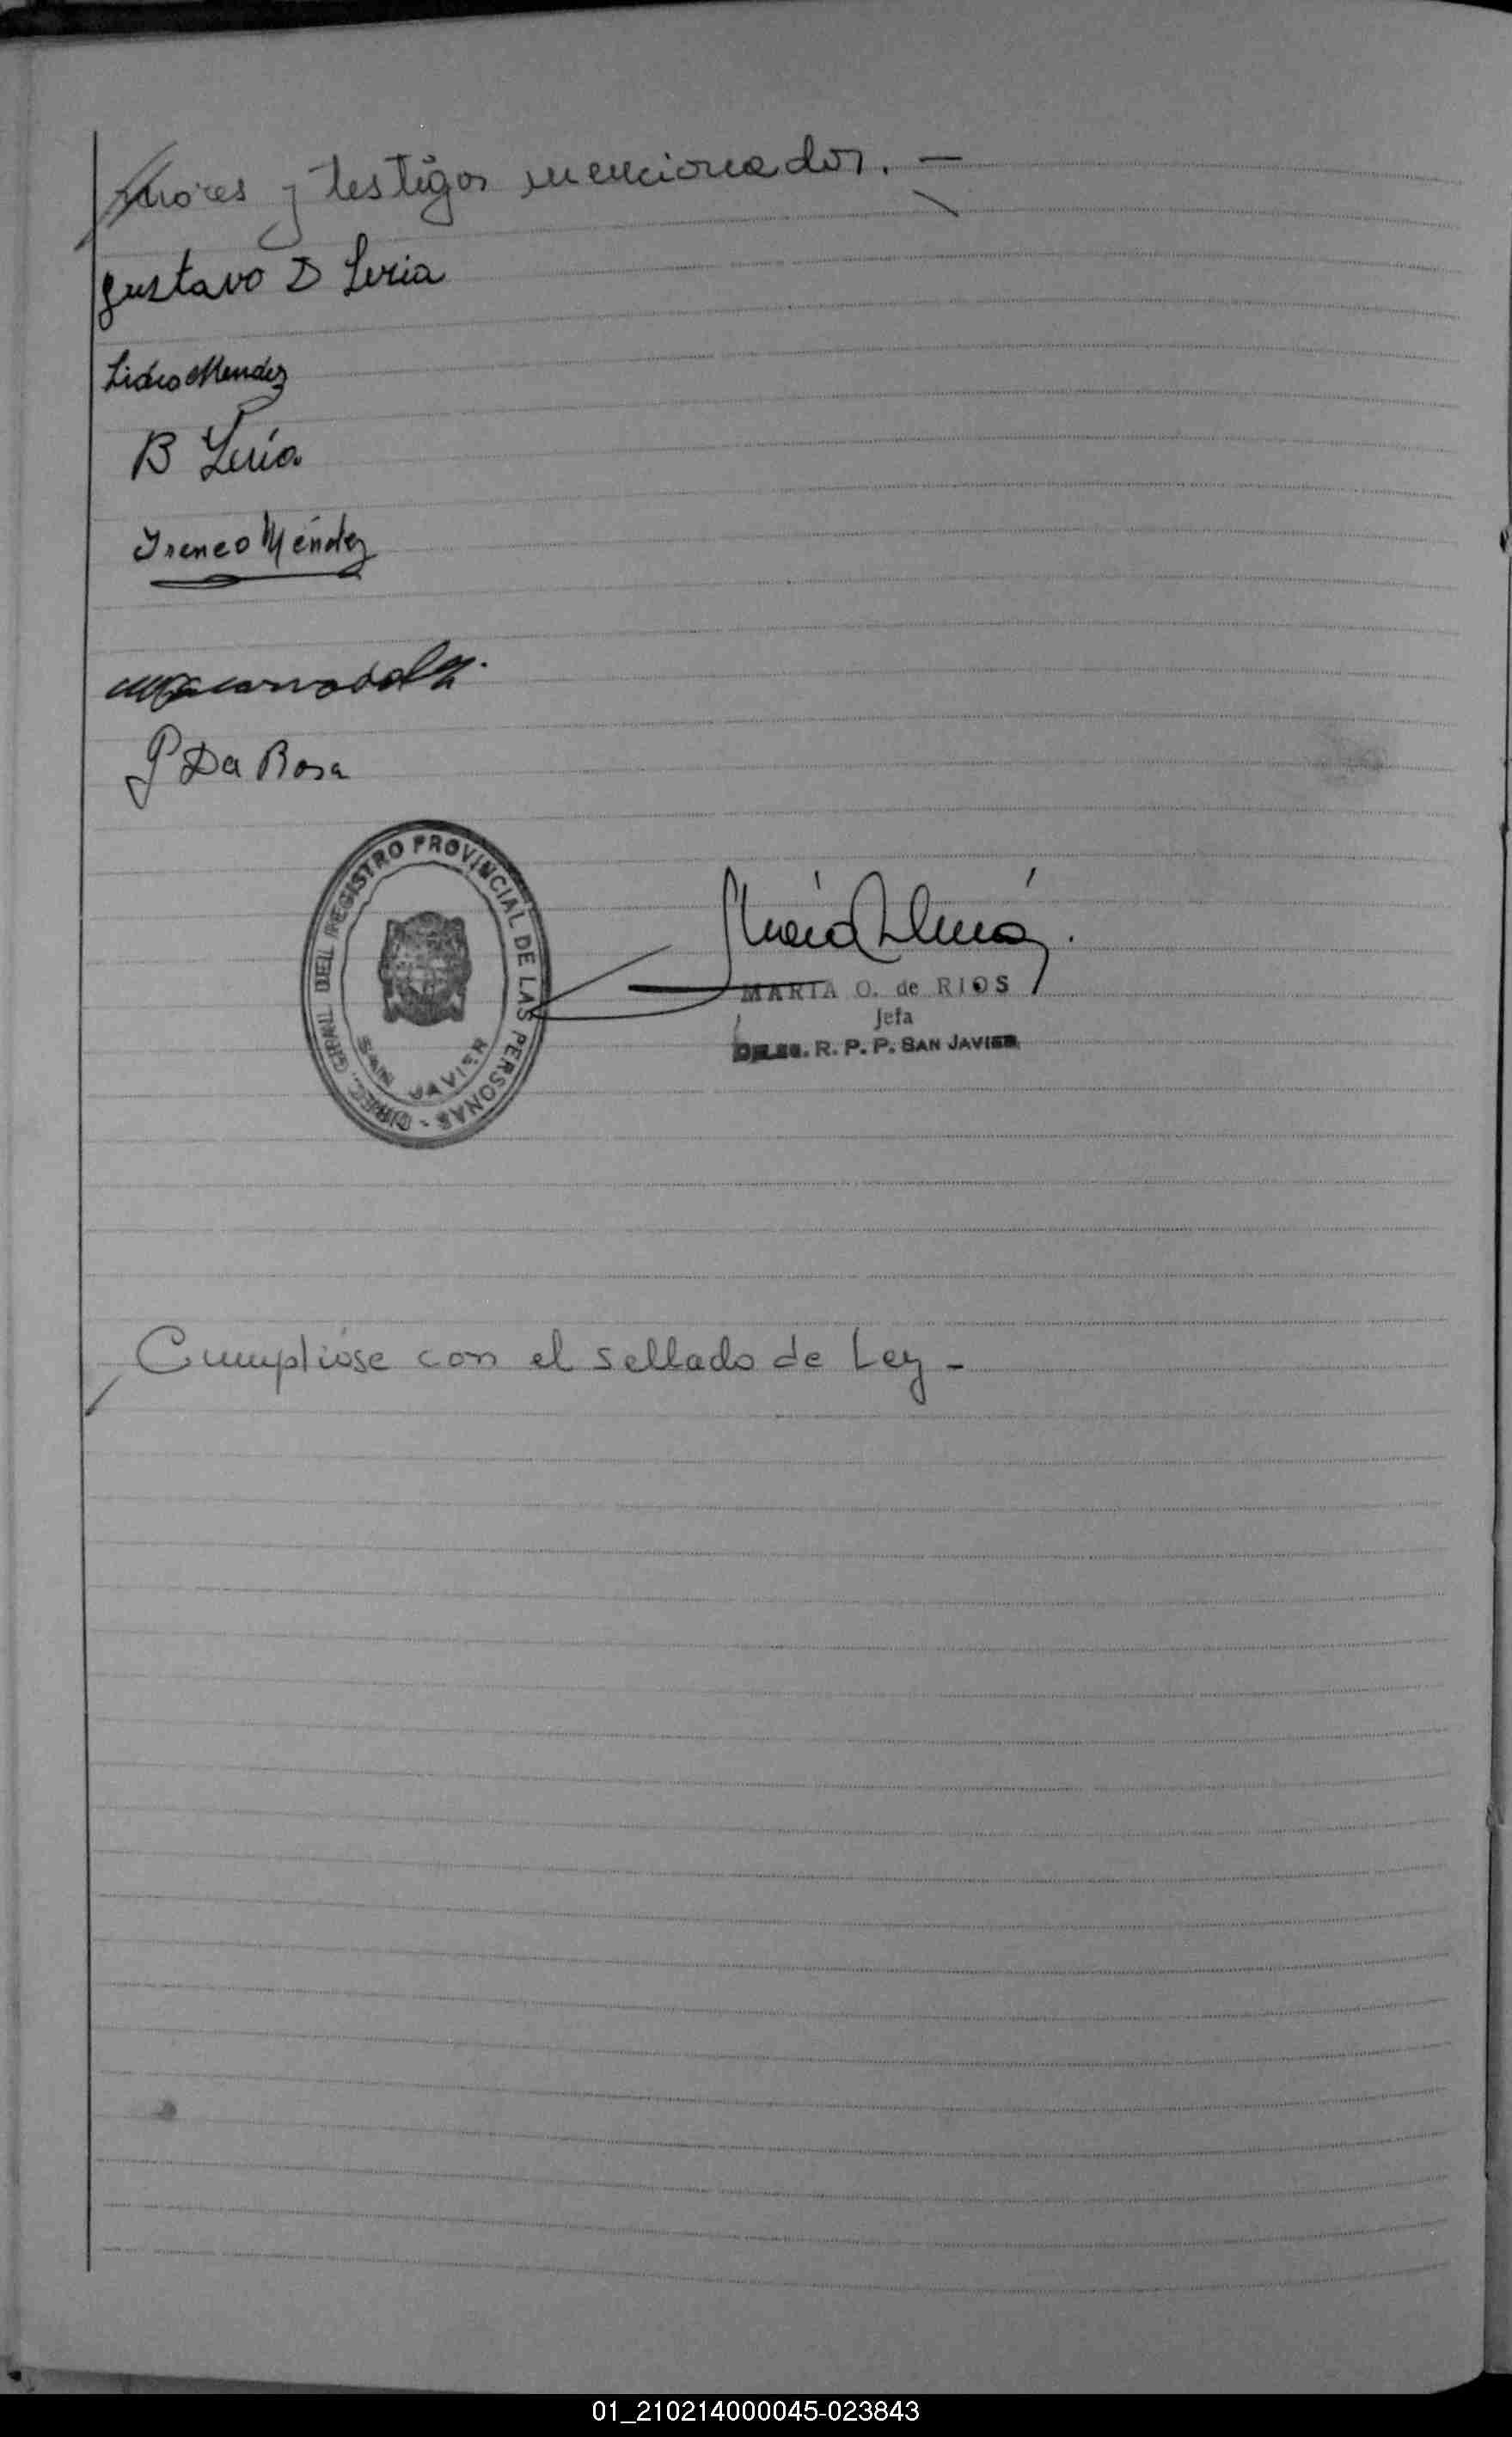 y testigos mencionados. —
Gustavo D Leria
Lidia Mendez
B Leria
Ireneo Méndez
P Da Rosa
DIREC. GRAL. DEL REGISTRO PROVINCIAL DE LAS PERSONAS -
SAN JAVIER
MARIA O. de RIOS
Jefa
DELEG. R. P. P. SAN JAVIER
Cumplióse con el sellado de Ley -
01_210214000045-023843